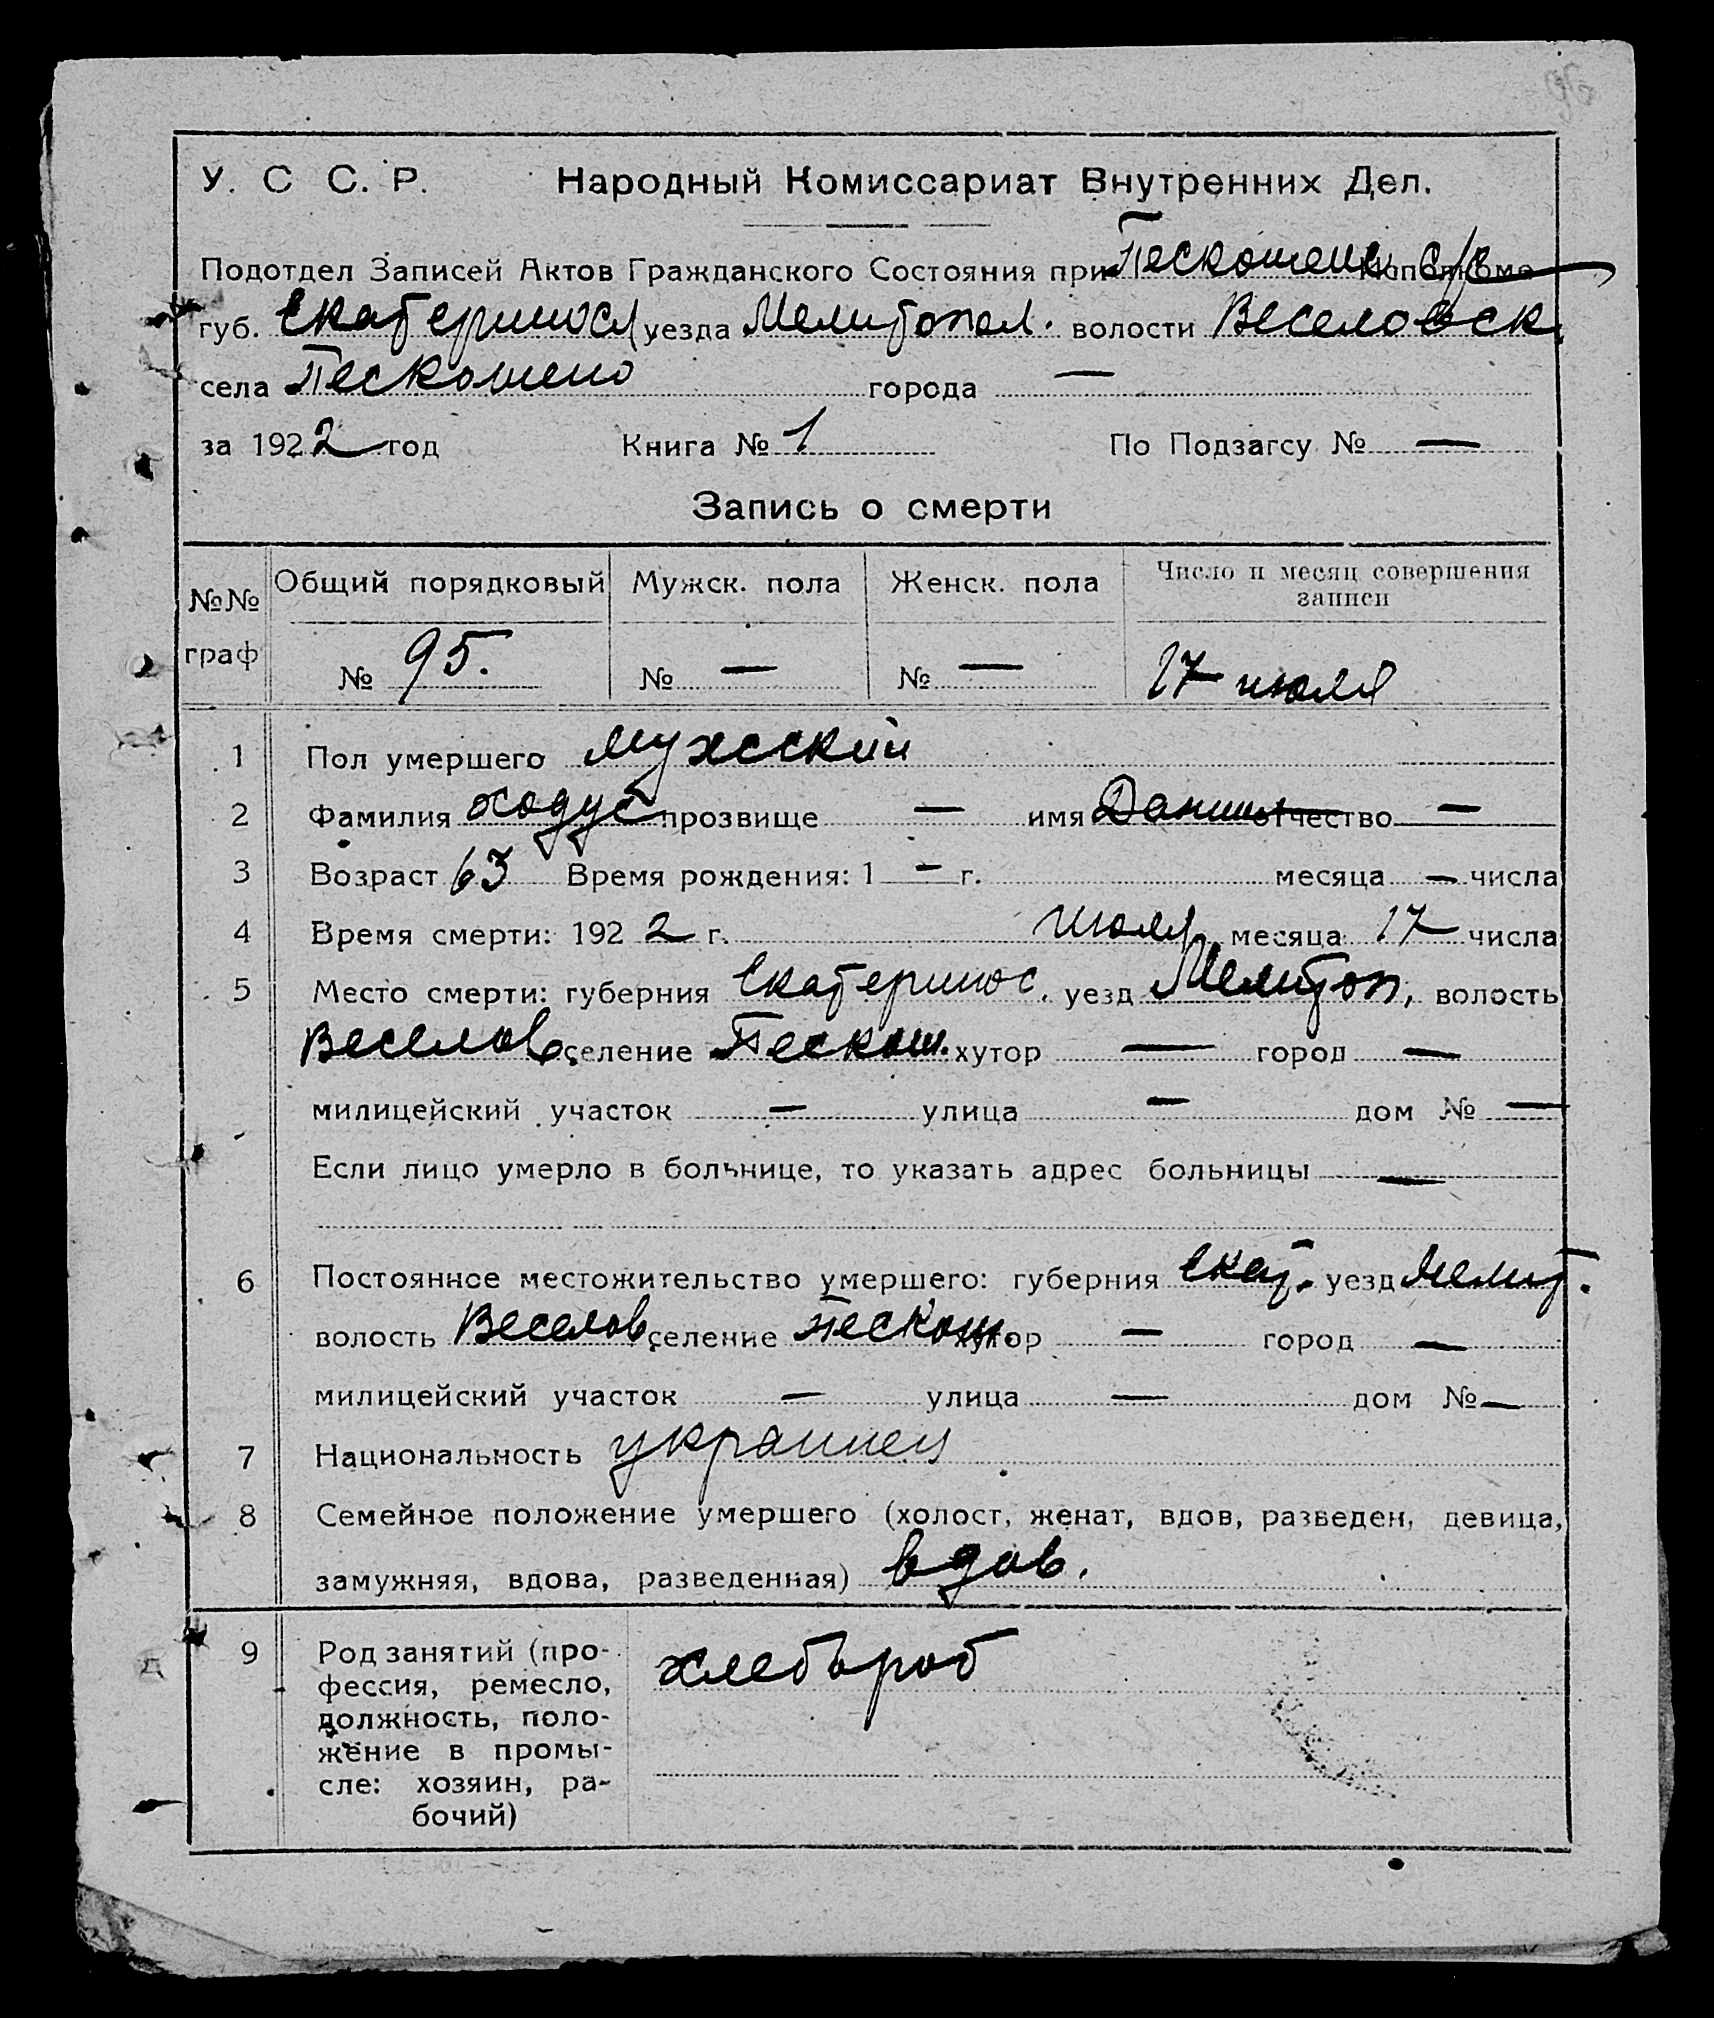 У. С С. Р. Народный Комиссариат Внутренних Дел.
Подотдел Записей Актов Гражданского Состояния при Пескошенск с/с
губ. Екатериносл уезда Мелитопол. волости Веселовск.
села Пескошено города —
за 1922 год Книга № 1 По Подзагсу № —
Запись о смерти
№№ граф
Общий порядковый Мужск. пола Женск. пола Число и месяц совершения записи
№ 95. № — № — 17 июля
1 Пол умершего Мужский
2 Фамилия Ходус прозвище — имя Данил отчество —
3 Возраст 63 Время рождения: 1 — г. месяца — числа
4 Время смерти: 1922 г. июля месяца 17 числа
5 Место смерти: губерния Екатеринос. уезд Мелитоп, волость
Веселов. селение Пескош. хутор — город —
милицейский участок — улица — дом № —
Если лицо умерло в больнице, то указать адрес больницы —
6 Постоянное местожительство умершего: губерния Екат. уезд Мелит.
волость Веселов. селение Пескош. хутор — город —
милицейский участок — улица — дом № —
7 Национальность украинец
8 Семейное положение умершего (холост, женат, вдов, разведен, девица,
замужняя, вдова, разведенная) вдов.
9 Род занятий (про- хлебороб
фессия, ремесло,
должность, поло-
жение в промы-
сле: хозяин, ра-
бочий)